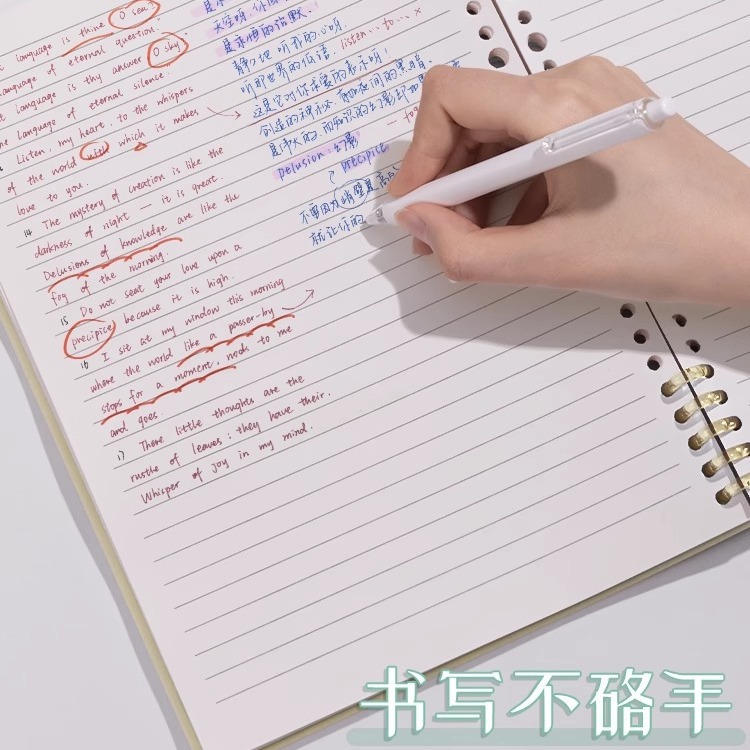 language is thine O sea?
language of eternal question.
language is thy answer O sky
The language of eternal silence.
Listen, my heart, to the whispers
of the world with which it makes
love to you.
14 The mystery of creation is like the
darkness of night — it is great.
Delusions of knowledge are like the
fog of the morning.
15 Do not seat your love upon a
precipice because it is high.
16 I sit at my window this morning
where the world like a passer-by
stops for a moment, nods to me
and goes.
17 There little thoughts are the
rustle of leaves; they have their.
Whisper of joy in my mind.
是永恒的沉默.
静静地 听 我的心呀
听那世界的低语 listen... to... ×
创造的神秘
是伟大的.而知识的幻影却如
Delusion:幻影
precipice
不要因为峭壁是高的
就让你的
书写不硌手